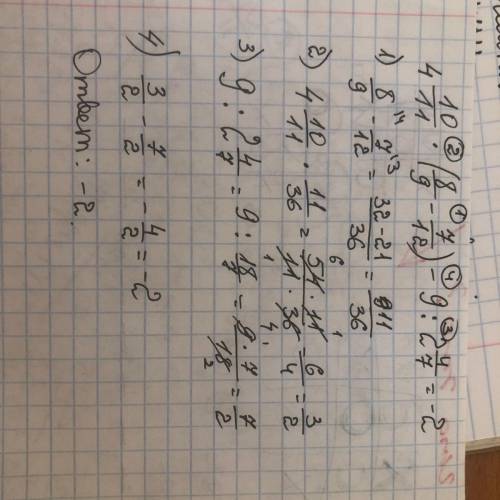 4 10/11 · (8/9 - 7/12) - 9 : 2 4/7 = -2
1) 8/9 - 7/12 = (32-21)/36 = 11/36
2) 4 10/11 · 11/36 = (54·11)/(11·36) = 6/4 = 3/2
3) 9 : 2 4/7 = 9 : 18/7 = (9·7)/18 = 7/2
4) 3/2 - 7/2 = -4/2 = -2
Ответ: -2.